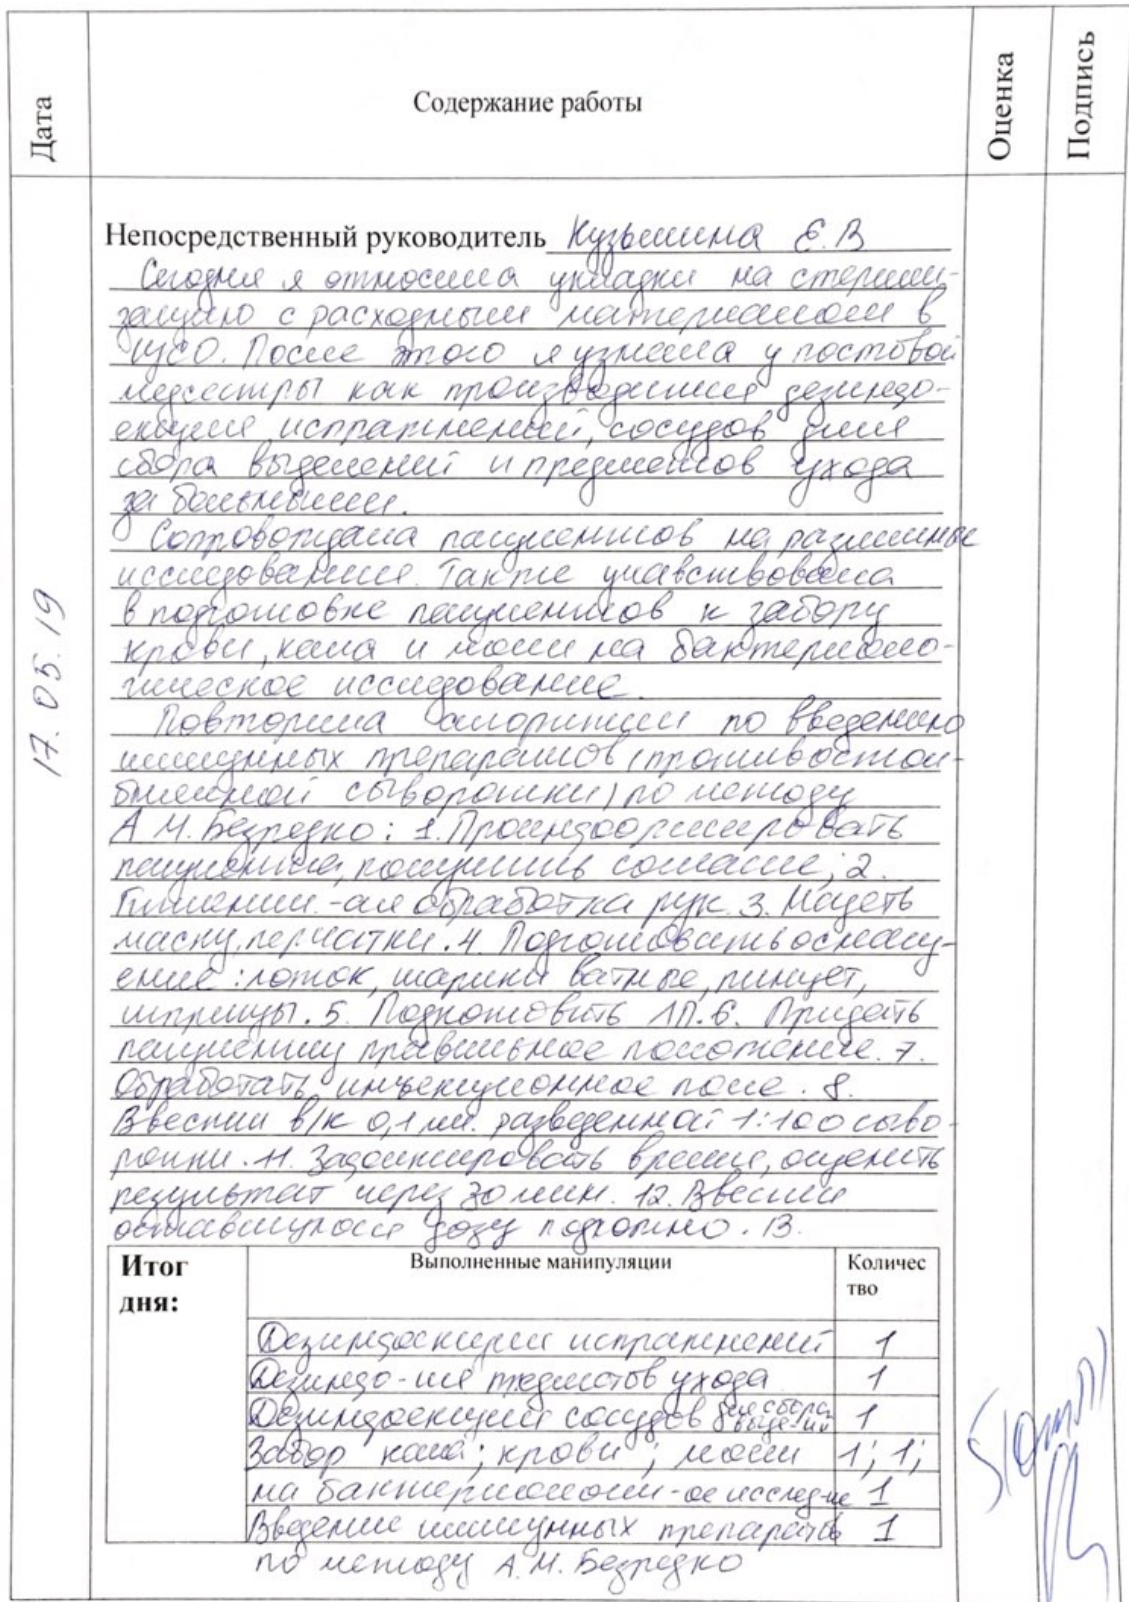 Дата
Содержание работы
Оценка
Подпись
17.05.19
Непосредственный руководитель Кузьмина Е.В
Сегодня я относила укладки на стерили-
зацию с расходным материалом в
ЦСО. После этого я узнала у постовой
медсестры как производится дезинфе-
екция испражнений, сосудов для
сбора выделений и предметов ухода
за больными.
Сопровождала пациентов на различные
исследования. Также учавствовала
в подготовке пациентов к забору
крови, кала и мочи на бактериоло-
гическое исследование.
Повторила алгоритм по введению
иммунных препаратов (противостол-
бнячной сыворотки) по методу
А М. Безредко: 1. Проинформировать
пациента, получить согласие; 2.
Гигиенич.-ая обработка рук. 3. Надеть
маску, перчатки. 4. Подготовить оснащ-
ение: лоток, шарики ватные, пинцет,
шприцы. 5. Подготовить ЛП. 6. Придать
пациенту правильное положение. 7.
Обработать инъекционное поле. 8.
Ввести в/к 0,1 мл. разведенной 1:100 сыво-
ротки. 11. Зафиксировать время, оценить
результат через 30 мин. 12. Ввести
оставшуюся дозу подкожно. 13.
Итог дня:
Выполненные манипуляции
Количес
тво
Дезинфекция испражнений 1
Дезинф-ия предметов ухода 1
Дезинфекция сосудов для сбора выде-ий 1
Забор кала; крови; мочи 1; 1;
на бактериологич-ое исслед-ие 1
Введение иммунных препаратов 1
по методу А.М. Безредко